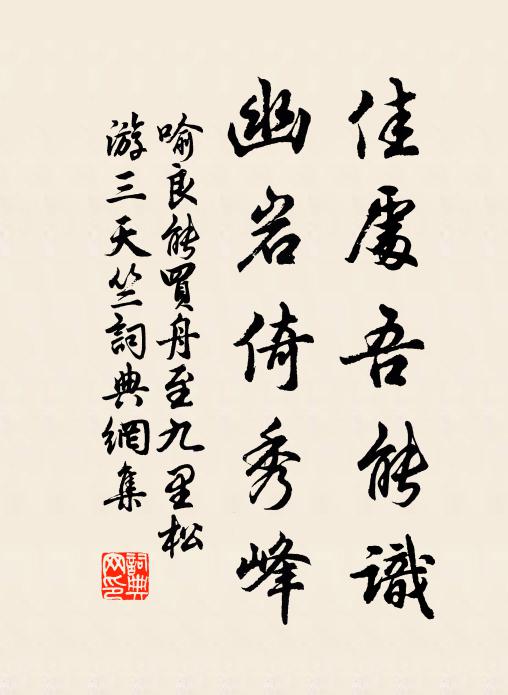 佳處吾能識
幽岩倚秀峰
喻良能買舟至九里松
游三天竺詞典網集
詞典网印